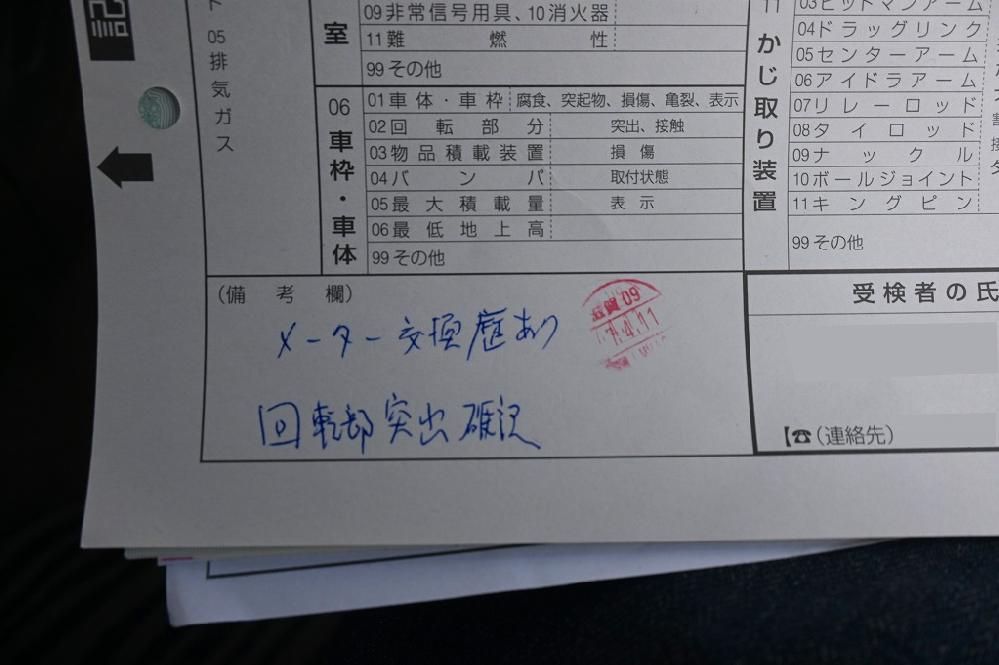 05排気ガス
室
09非常信号用具、10消火器
11難燃性
99その他
06車枠・車体
01車体・車枠 腐食、突起物、損傷、亀裂、表示
02回転部分 突出、接触
03物品積載装置 損傷
04バンパ 取付状態
05最大積載量 表示
06最低地上高
99その他
11かじ取り装置
03ピットマンアーム
04ドラッグリンク
05センターアーム
06アイドラアーム
07リレーロッド
08タイロッド
09ナックル
10ボールジョイント
11キングピン
99その他
(備考欄)
メーター交換歴あり
回転部突出確認
滋賀09
7.4.11
受検者の氏
【☎(連絡先)